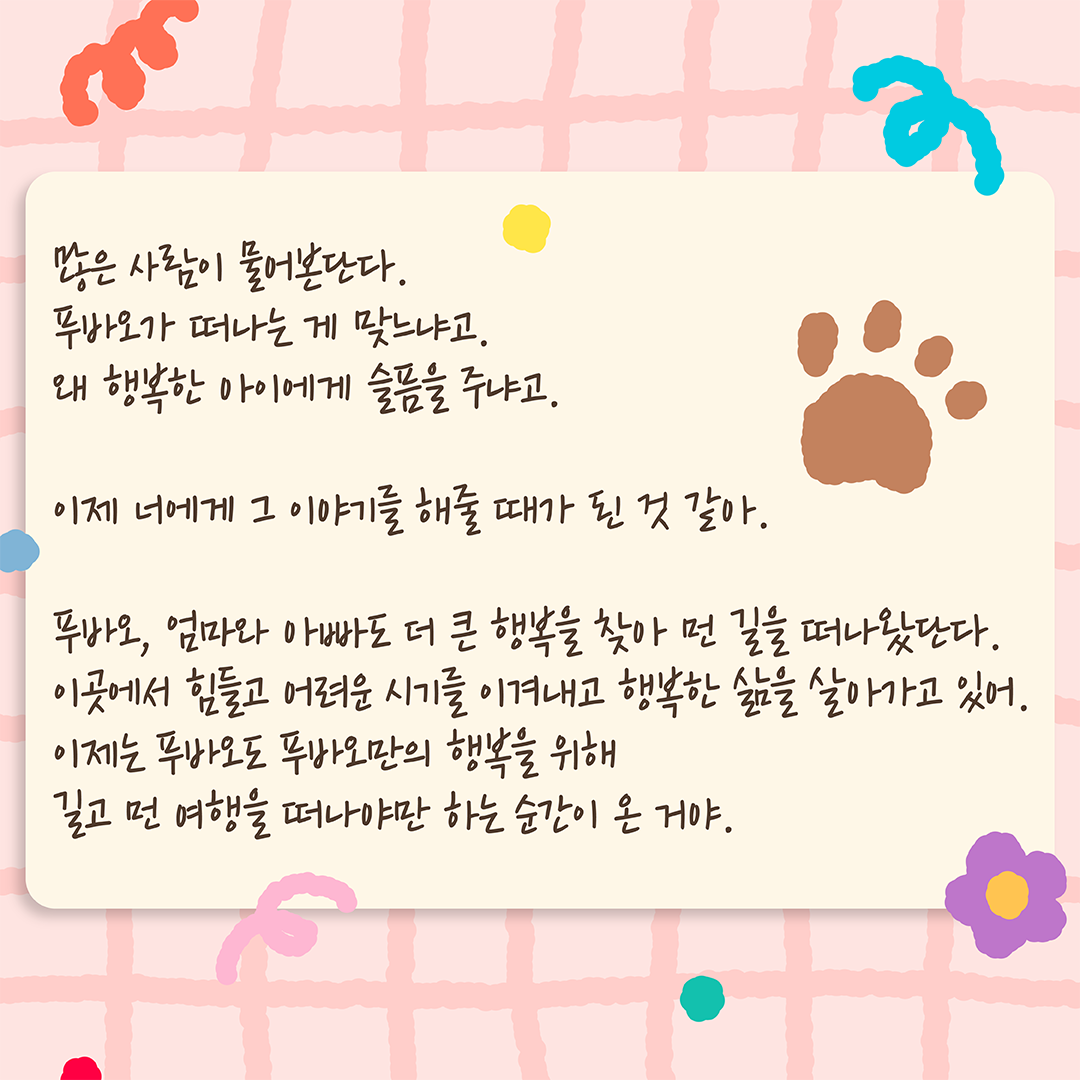 많은 사람이 물어본단다.
푸바오가 떠나는 게 맞느냐고.
왜 행복한 아이에게 슬픔을 주냐고.
이제 너에게 그 이야기를 해줄 때가 된 것 같아.
푸바오, 엄마와 아빠도 더 큰 행복을 찾아 먼 길을 떠나왔단다.
이곳에서 힘들고 어려운 시기를 이겨내고 행복한 삶을 살아가고 있어.
이제는 푸바오도 푸바오만의 행복을 위해
길고 먼 여행을 떠나야만 하는 순간이 온 거야.